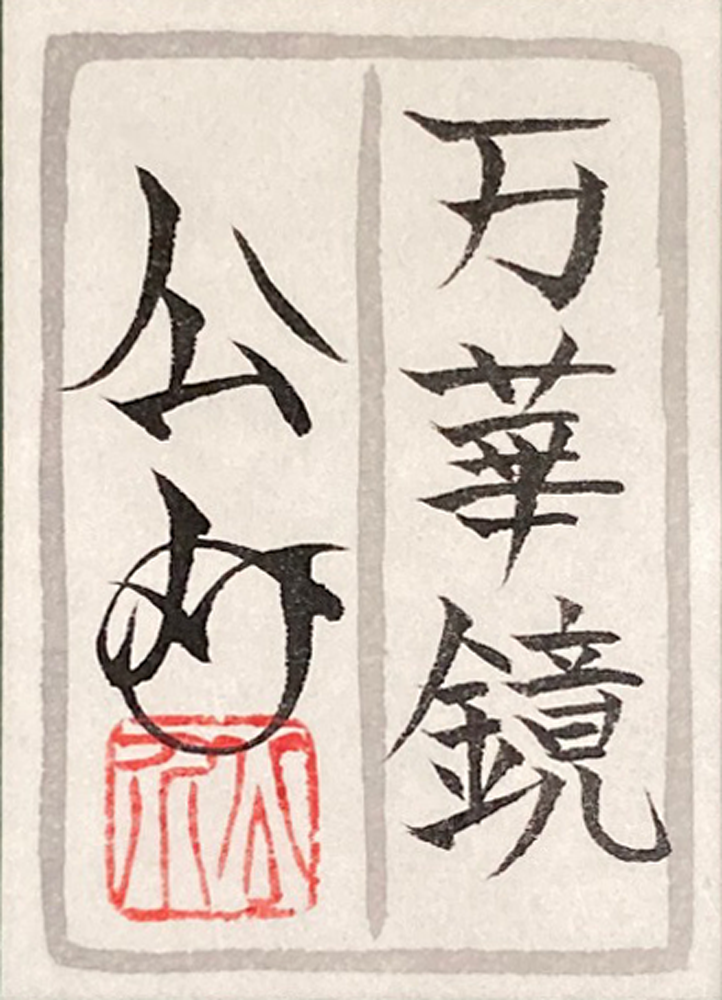 万華鏡
公